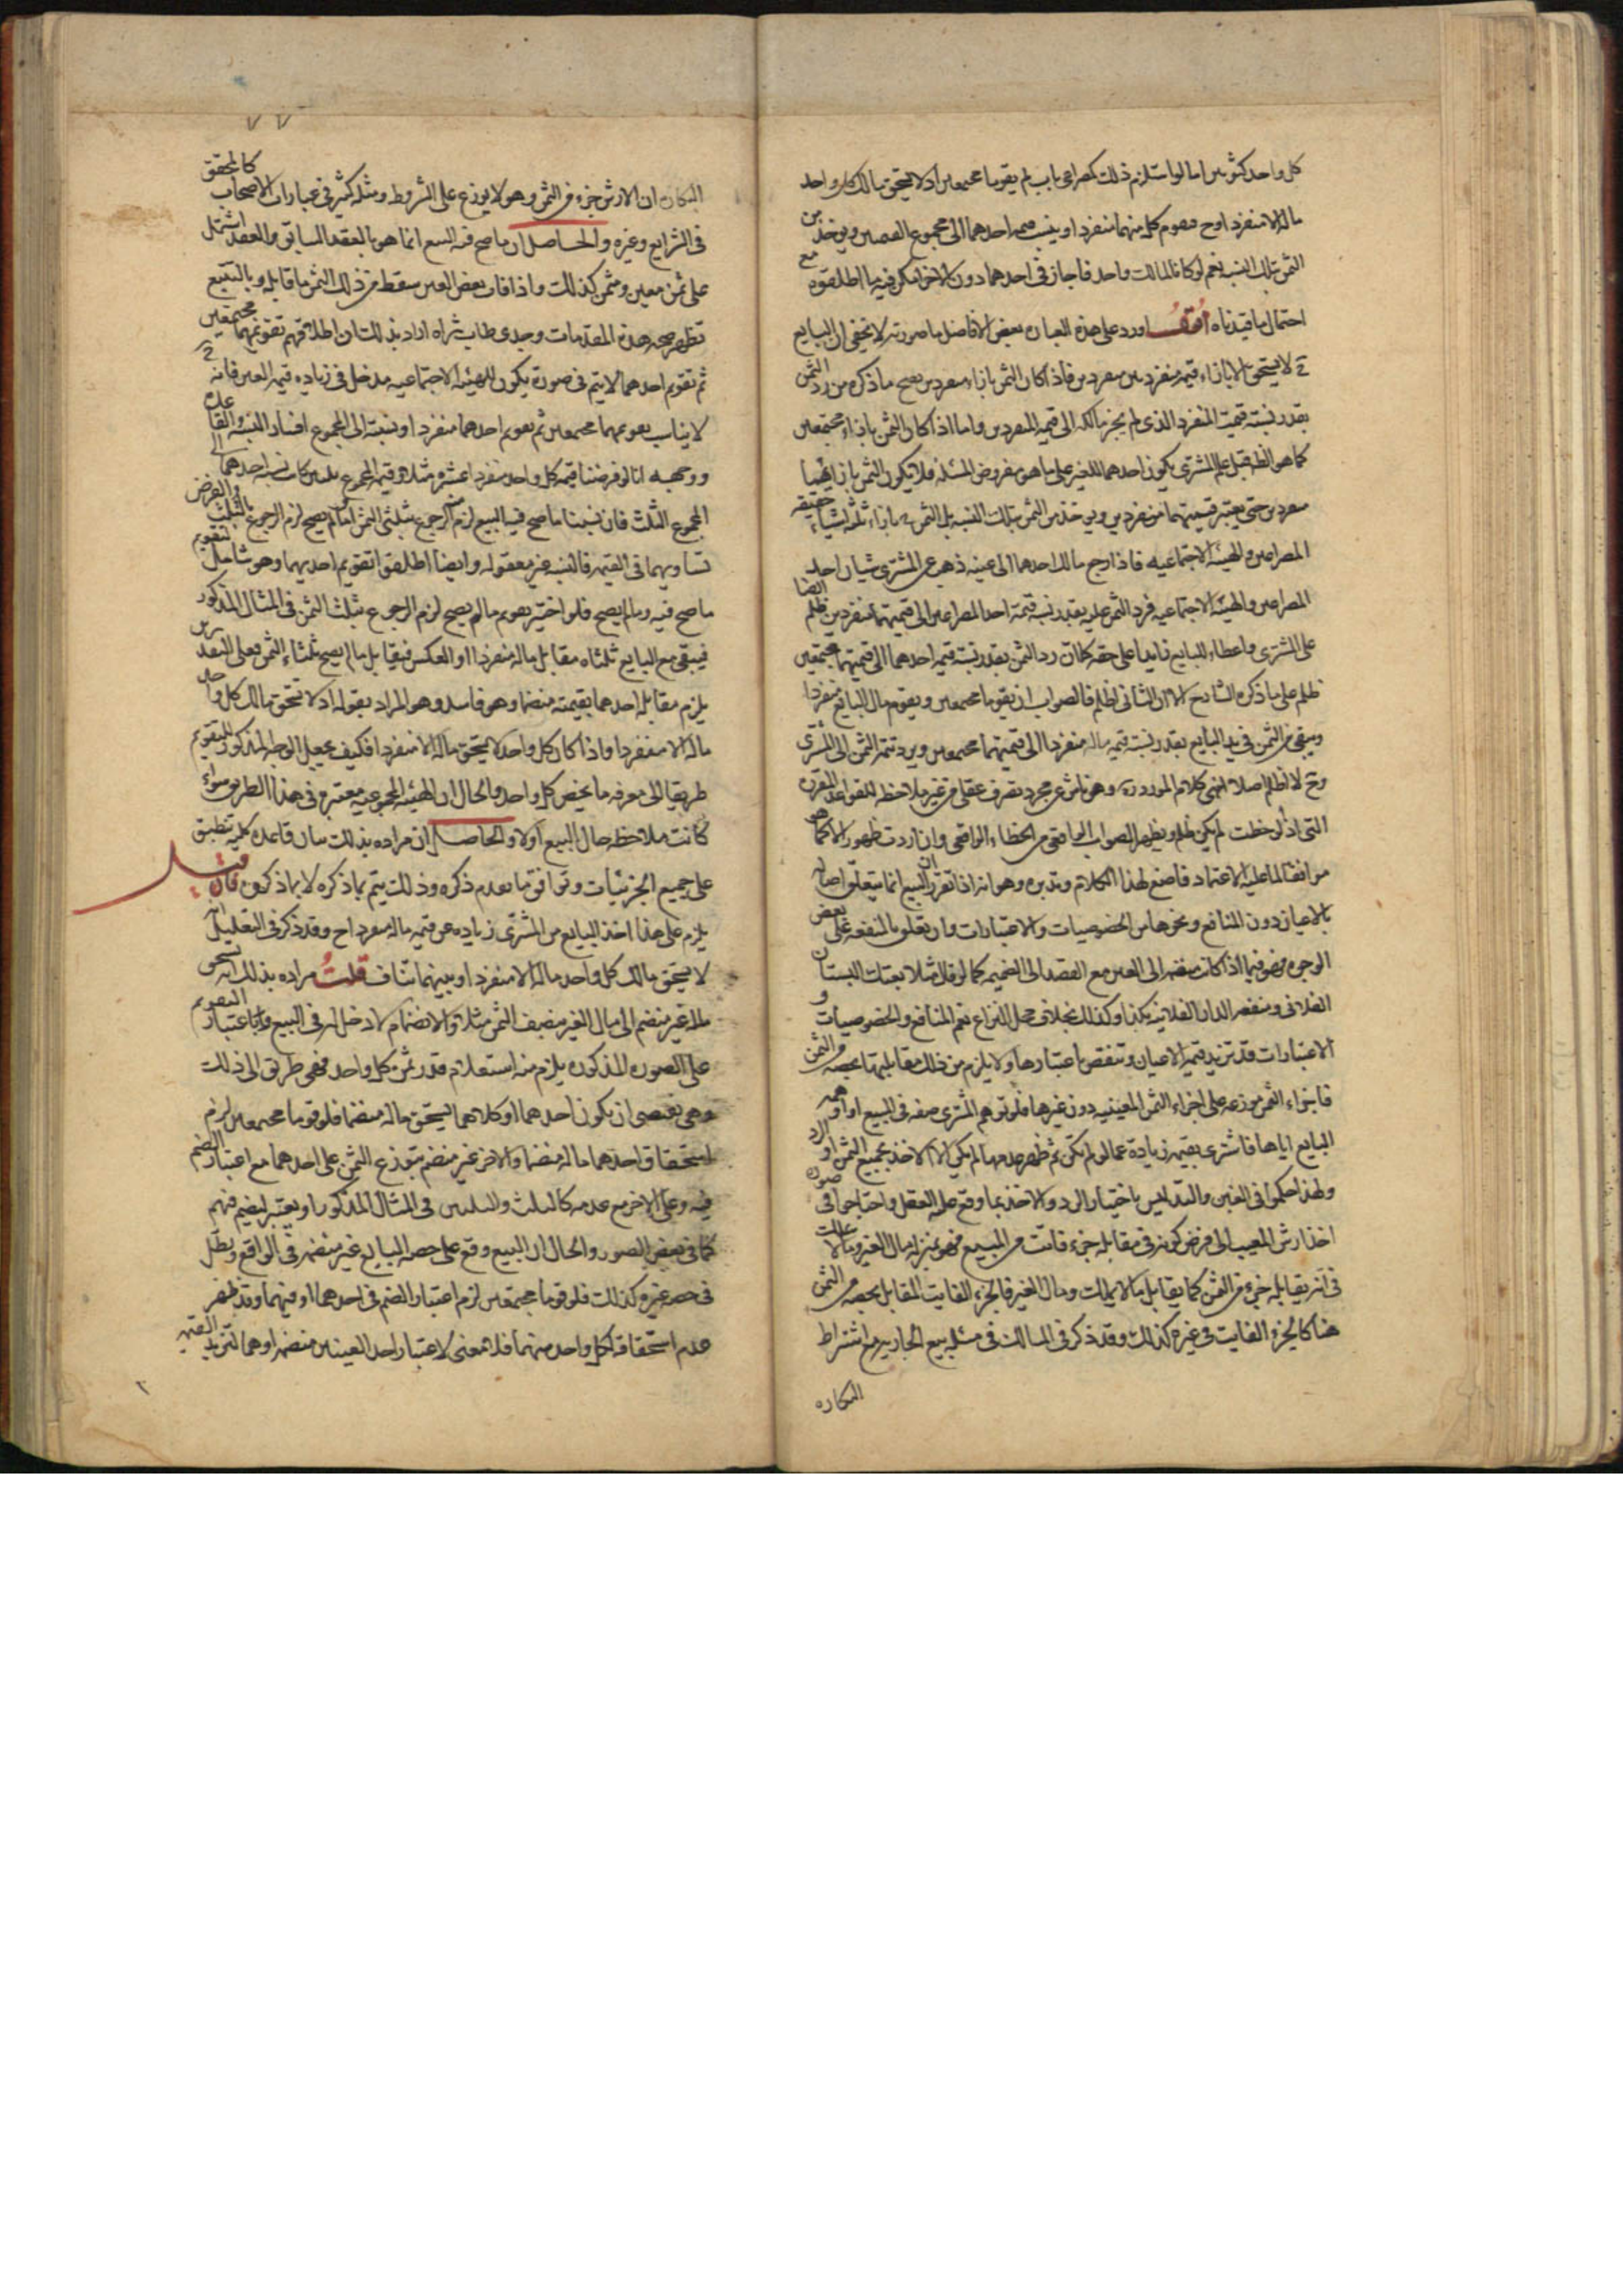 كل واحد كثوبين اما لو استلزم ذلك كمصراعى باب لم يقوما مجتمعين اذ لا يستحق مالك كل واحد
ماله الا منفردا وح فيقوم كل منهما منفردا وينسب قيمة احدهما الى مجموع القيمتين ويؤخذ من
الثمن بتلك النسبة نعم لو كانا لمالك واحد فاجاز فى احدهما دون الاخر امكن فيه ما اطلقوه مع
احتمال ما قيدناه اقول اورد على هذه العبارة بعض الافاضل ما صورته لا يخفى ان البايع
ح لا يستحق الا بازاء قيمة منفردين فاذا كان الثمن بازاء منفردين يصح ما ذكره من رد الثمن
بقدر نسبة قيمة المنفرد الذى لم يجز مالكه الى قيمة المنفردين واما اذا كان الثمن بازاء مجتمعين
كما هو الظ قبل علم المشترى بكون احدهما للغير على ما هو مفروض المسئلة فلا يكون الثمن بازائهما
منفردين حتى يعتبر قيمتهما منفردين ويؤخذ من الثمن بتلك النسبة بل الثمن ح بازاء ثلثة اشياء حقيقة
المصراعين والهيئة الاجتماعية فاذا رجع مالك احدهما الى عينه ذهب عن المشترى شيئان احد
المصراعين والهيئة الاجتماعية فرد الثمن عليه بقدر نسبة قيمة احد المصراعين الى قيمتهما منفردين ظلم ايضا
على المشترى واعطاء للبايع زايدا على حقه كما ان رد الثمن بقدر نسبة قيمة احدهما الى قيمتهما مجتمعين
ظلم على ما ذكره الشارح الا ان الثانى اظلم فالصواب ان يقوما مجتمعين ويقوم مال البايع منفردا
ويبقى من الثمن فى يد البايع بقدر نسبة قيمة ماله منفردا الى قيمتهما مجتمعين ويرد تتمة الثمن الى المشترى
وح لا ظلم اصلا انتهى كلام المورد ره وهو ناش عن مجرد تصرف عقلى من غير ملاحظة للقواعد المقررة
التى اذا لوحظت لم يكن ظلم ويظهر الصواب الواقعى من الخطاء الواقعى وان اردت ظهور الامر كما هو
موافقا لما عليه الاعتماد فاصغ لهذا الكلام وتدبره وهو انه اذا تقرر ان البيع انما يتعلق اصالة
بالاعيان دون المنافع ونحوها من الخصوصيات والاعتبارات وان تعلق بالمنفعة على بعض
الوجوه فهو فيما اذا كانت منضمة الى العين مع القصد الى الضميمة كما لو قال مثلا بعتك البستان
الفلانى ومنفعة الدار الفلانية بكذا وكذلك بخلاف محل النزاع نعم المنافع والخصوصيات و
الاعتبارات قد تزيد قيمة الاعيان وتنقص باعتبارها ولا يلزم من ذلك مقابلتها بحصة من الثمن
فاجزاء الثمن موزعة على اجزاء الثمن المعينية دون غيرها فلو توهم المشترى صفة فى المبيع او اوهمه
البايع اياها فاشترى بقيمة زيادة عما لو لم تكن ثم ظهر عدمها لم يكن الا الاخذ بجميع الثمن او الرد
ولهذا حكموا فى الغبن والتدليس باختيار الرد والاخذ بما وقع عليه العقد واحتاجوا فى صورة
اخذ ارش المعيب الى فرض كونه فى مقابلة جزء فائت من المبيع فهو بمنزلة مال الغير وما لا يملك
فى انه يقابله جزء من الثمن كما يقابل ما لا يملك ومال الغير فالجزء الفايت المقابل بحصة من الثمن
هنا كالجزء الفايت فى غيره كذلك وقد ذكر فى المسالك فى مسئلة بيع الجارية مع اشتراط
البكاره
٧٧
البكاره ان الارش جزء من الثمن وهو لا يوزع على الشروط ومثله كثير فى عبارات الاصحاب كالمحقق
فى الشرايع وغيره والحاصل ان ما صح فيه البيع انما هو بالعقد السابق والعقد اشتمل
على ثمن معين ومثمن كذلك واذا فات بعض العين سقط من ذلك الثمن ما قابله وبالتتبع
تظهر صحة هذه المقدمات وجدى طاب ثراه اراد بذلك ان اطلاقهم تقويمهما مجتمعين
ثم تقويم احدهما لا يتم فى صورة يكون للهيئة الاجتماعية مدخل فى زيادة قيمة العين فانه ح
لا يناسب تقويمهما مجتمعين ثم تقويم احدهما منفردا ونسبته الى المجموع لفساد النسبة والقاعدة
ووجهه انا لو فرضنا قيمة كل واحد منفردا عشرة مثلا وقيمة المجموع ثلثين كان نسبة احدهما الى
المجموع الثلث فان نسبنا ما صح فيه البيع لزم الرجوع بثلثى الثمن او ما لم يصح لزم الرجوع بالثلث والفرض
تساويهما فى القيمة فالنسبة غير معقولة وايضا اطلقوا تقويم احديهما وهو شامل لتقويم
ما صح فيه وما لم يصح فلو اختير تقويم ما لم يصح لزم الرجوع بثلث الثمن فى المثال المذكور
فيبقى مع البايع ثلثاه مقابل ماله منفردا او العكس فيقابل ما لم يصح ثلثاء الثمن فعلى التقديرين
يلزم مقابلة احدهما بقيمته منضما وهو فاسد وهو المراد بقوله اذ لا يستحق مالك كل واحد
ماله الا منفردا واذا كان كل واحد لا يستحق ماله الا منفردا فكيف يجعل الوجه المذكور للتقويم
طريقا الى معرفة ما يخص كل واحد والحال ان الهيئة المجموعية معتبرة فى هذا الطريق سواء
كانت ملاحظة حال البيع اولا والحاصل ان مراده بذلك بيان قاعدة كلية تنطبق
على جميع الجزئيات وتوافق ما تقدم ذكره وذلك يتم بما ذكره لا بما ذكروه فان قيل
يلزم على هذا اخذ البايع من المشترى زيادة عن قيمة ماله منفردا ح وقد ذكر فى التعليل انه
لا يستحق مالك كل واحد ماله الا منفردا وبينهما تناف قلت مراده بذلك انه يستحق
ماله غير منضم الى مال الغير بنصف الثمن مثلا والانضمام لا دخل له فى البيع واما اعتبار التقويم
على الصورة المذكورة يلزم منه استعلام قدر ثمن كل واحد فهى طريق الى ذلك
وهى تقتضى ان يكون احدهما او كلاهما يستحق ماله منضما فلو قوما مجتمعين لزم
استحقاق احدهما ماله منضما والاخر غير منضم بتوزع الثمن على احدهما مع اعتبار الضم
فيه وعلى الاخر مع عدمه كالثلث والثلثين فى المثال المذكور او يعتبر الضم فيهم
كما فى بعض الصور والحال ان البيع وقع على حصة البايع غير منضمة فى الواقع وبطل
فى حصة غيره كذلك فلو قوما مجتمعين لزم اعتبار الضم فى احدهما او فيهما وقد ظهر
عدم استحقاق كل واحد منهما فلا معنى لاعتبار احد العينين منضمة او هما لتزيد القيمة
٢